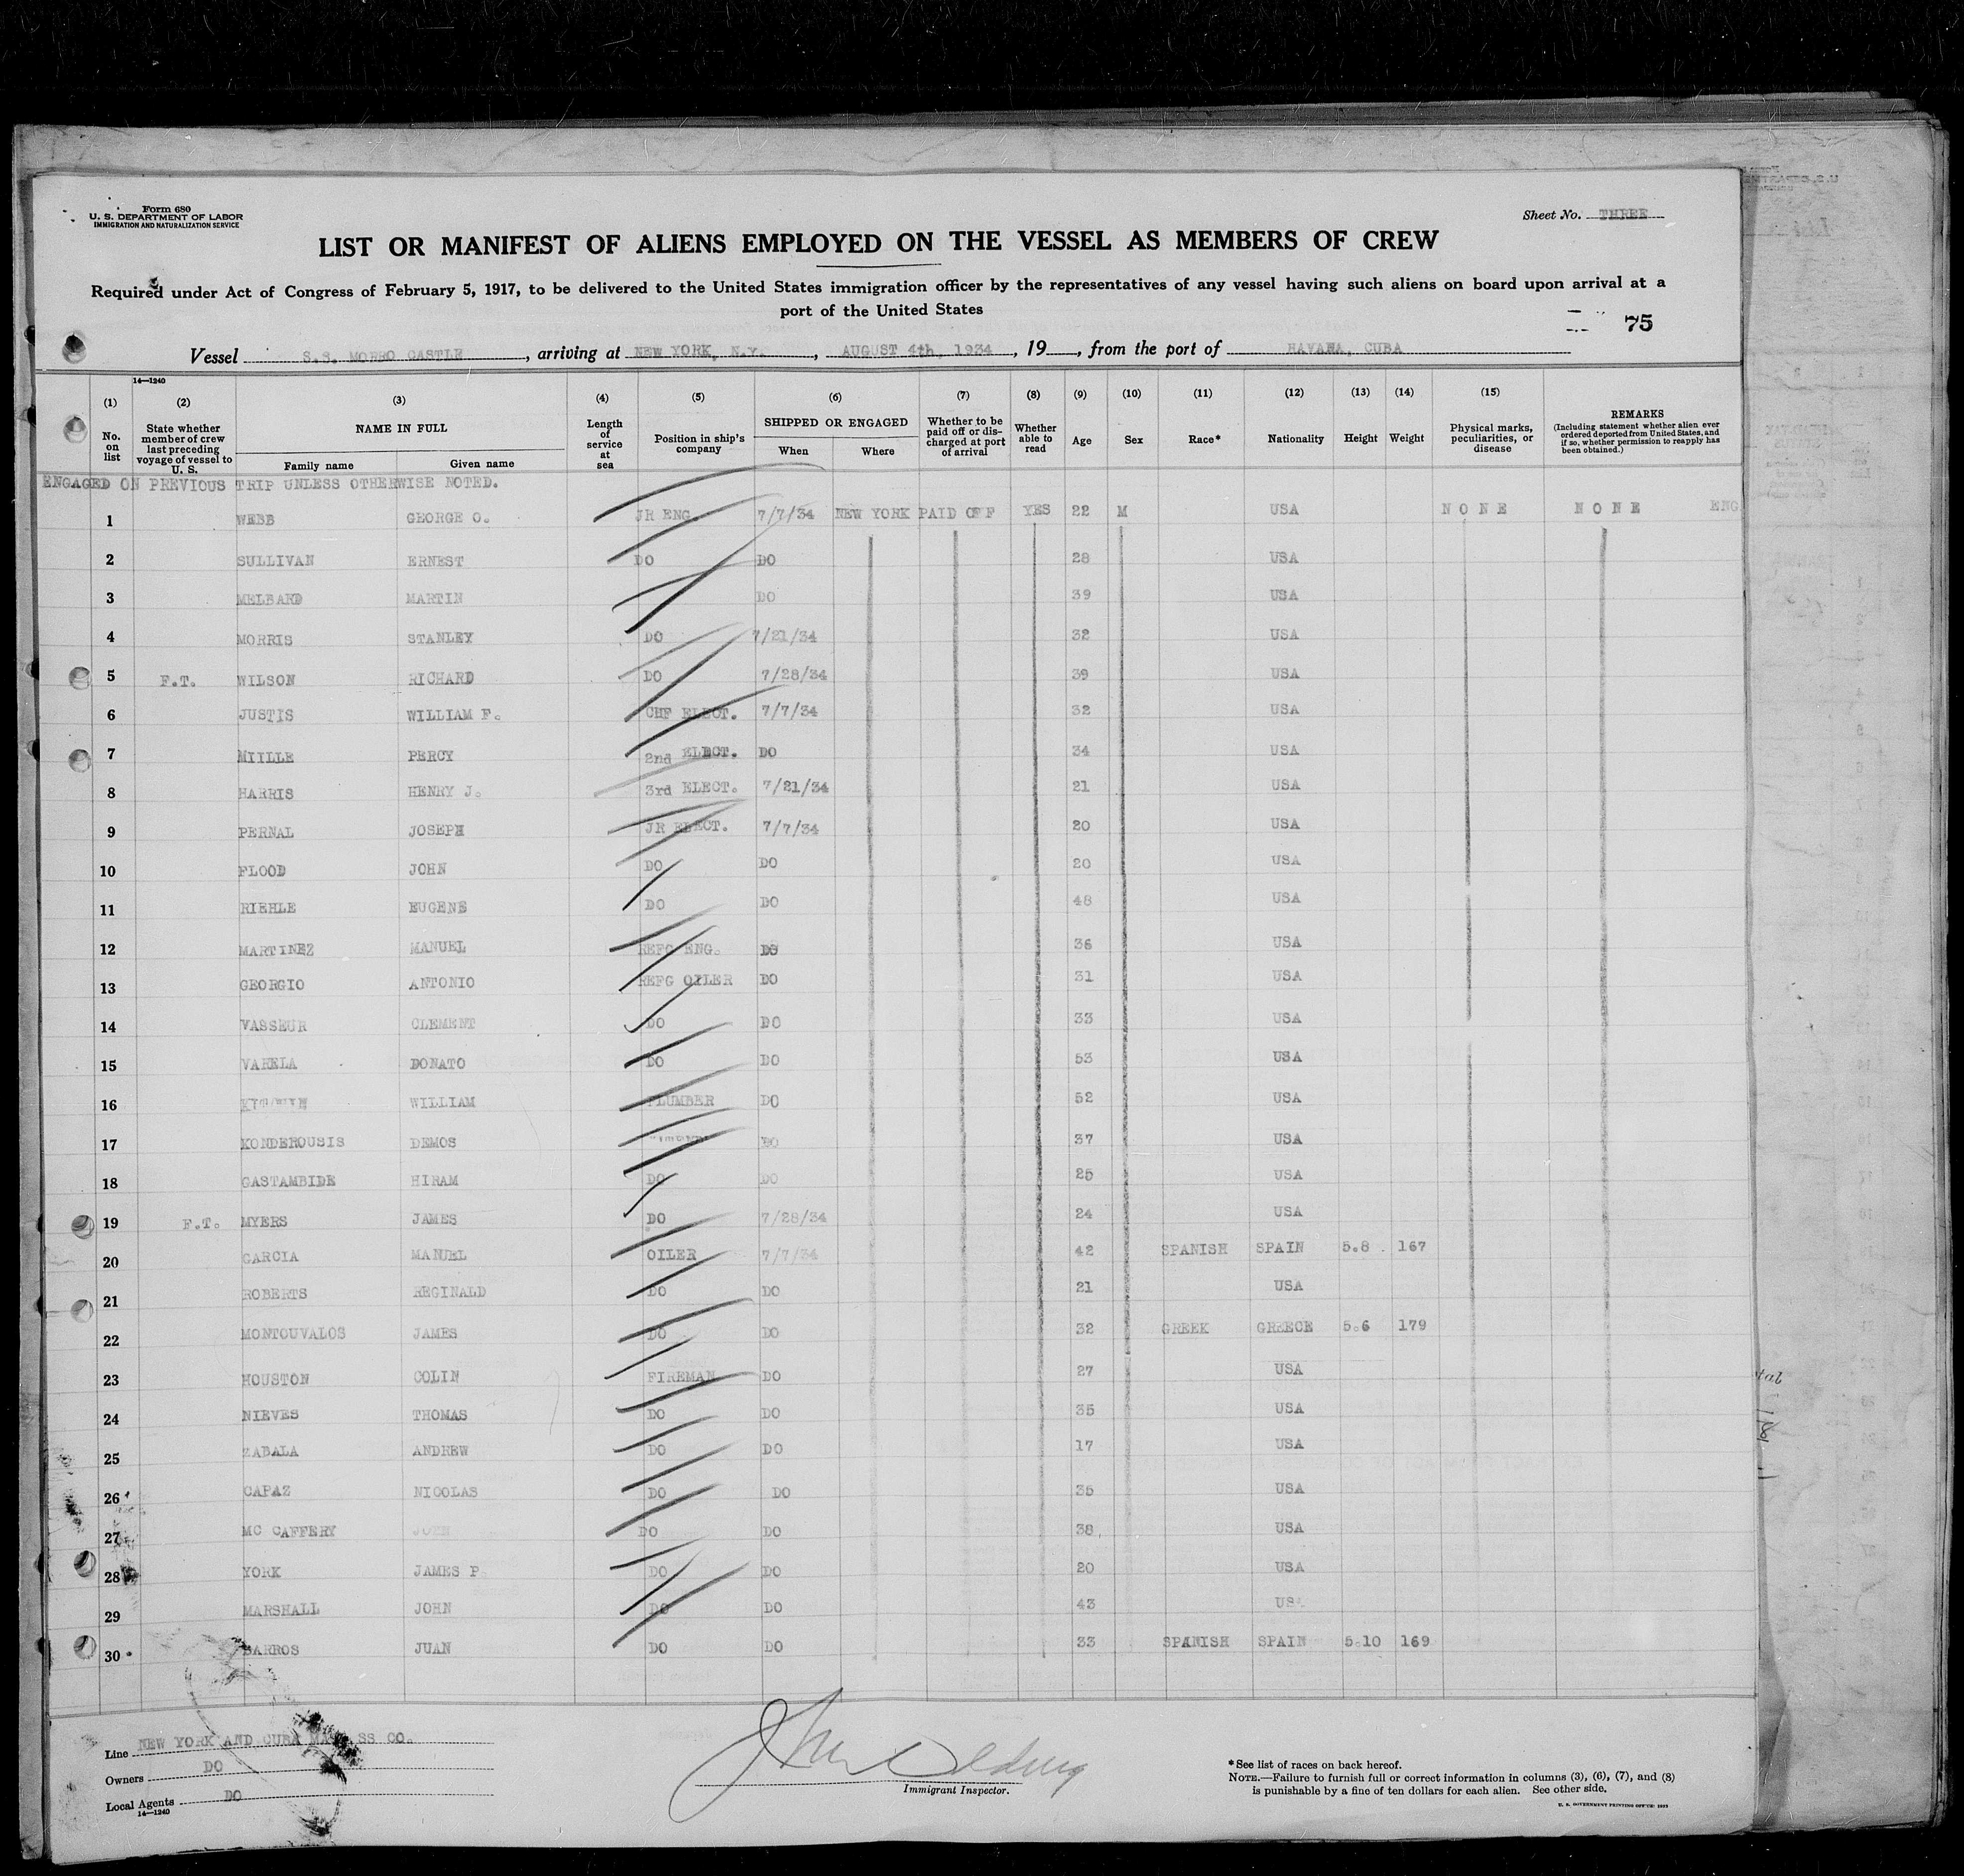 Form 680
U. S. DEPARTMENT OF LABOR
IMMIGRATION AND NATURALIZATION SERVICE
Sheet No. THREE
LIST OR MANIFEST OF ALIENS EMPLOYED ON THE VESSEL AS MEMBERS OF CREW
Required under Act of Congress of February 5, 1917, to be delivered to the United States immigration officer by the representatives of any vessel having such aliens on board upon arrival at a
port of the United States
75
Vessel S.S. MORRO CASTLE, arriving at NEW YORK, N.Y., AUGUST 4th, 1934, 19, from the port of HAVANA, CUBA
14—1240
(1) (2) (3) (4) (5) (6) (7) (8) (9) (10) (11) (12) (13) (14) (15)
No. on list State whether member of crew last preceding voyage of vessel to U. S. NAME IN FULL Family name Given name Length of service at sea Position in ship's company SHIPPED OR ENGAGED When Where Whether to be paid off or discharged at port of arrival Whether able to read Age Sex Race* Nationality Height Weight Physical marks, peculiarities, or disease REMARKS (Including statement whether alien ever ordered deported from United States, and if so, whether permission to reapply has been obtained.)
ENGAGED ON PREVIOUS TRIP UNLESS OTHERWISE NOTED.
1 WEBB GEORGE O. JR ENG. 7/7/34 NEW YORK PAID OFF YES 22 M USA NONE NONE ENG
2 SULLIVAN ERNEST DO DO 28 USA
3 MELBARD MARTIN DO 39 USA
4 MORRIS STANLEY DO 7/21/34 32 USA
5 F.T. WILSON RICHARD DO 7/28/34 39 USA
6 JUSTIS WILLIAM F. CHF ELECT. 7/7/34 32 USA
7 MIILLE PERCY 2nd ELECT. DO 34 USA
8 HARRIS HENRY J. 3rd ELECT. 7/21/34 21 USA
9 PERNAL JOSEPH JR ELECT. 7/7/34 20 USA
10 FLOOD JOHN DO DO 20 USA
11 RIEHLE EUGENE DO DO 48 USA
12 MARTINEZ MANUEL REFG ENG. DO 36 USA
13 GEORGIO ANTONIO REFG OILER DO 31 USA
14 VASSEUR CLEMENT DO DO 33 USA
15 VARELA DONATO DO DO 53 USA
16 WILLIAM PLUMBER DO 52 USA
17 KONDEROUSIS DEMOS DO 37 USA
18 GASTAMBIDE HIRAM DO DO 25 USA
19 F.T. MYERS JAMES DO 7/28/34 24 USA
20 GARCIA MANUEL OILER 7/7/34 42 SPANISH SPAIN 5.8 167
21 ROBERTS REGINALD DO DO 21 USA
22 MONTOUVALOS JAMES DO DO 32 GREEK GREECE 5.6 179
23 HOUSTON COLIN FIREMAN DO 27 USA
24 NIEVES THOMAS DO DO 35 USA
25 ZABALA ANDREW DO DO 17 USA
26 CAPAZ NICOLAS DO DO 35 USA
27 MC CAFFERY JOHN DO DO 38 USA
28 YORK JAMES P DO DO 20 USA
29 MARSHALL JOHN DO DO 43 USA
30 BARROS JUAN DO DO 33 SPANISH SPAIN 5.10 169
Line NEW YORK AND CUBA MAIL SS CO.
Owners DO
Local Agents DO
14—1240
Immigrant Inspector.
*See list of races on back hereof.
NOTE.—Failure to furnish full or correct information in columns (3), (6), (7), and (8)
is punishable by a fine of ten dollars for each alien. See other side.
U. S. GOVERNMENT PRINTING OFFICE: 1933